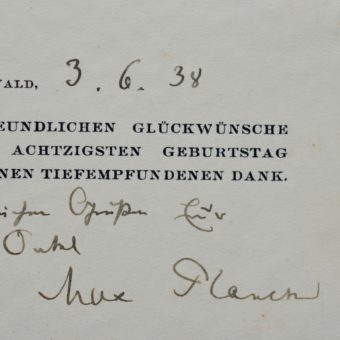 VALD, 3. 6. 38
EUNDLICHEN GLÜCKWÜNSCHE
ACHTZIGSTEN GEBURTSTAG
NEN TIEFEMPFUNDENEN DANK.
ichen Grüßen Euer
Onkel
Max Planck